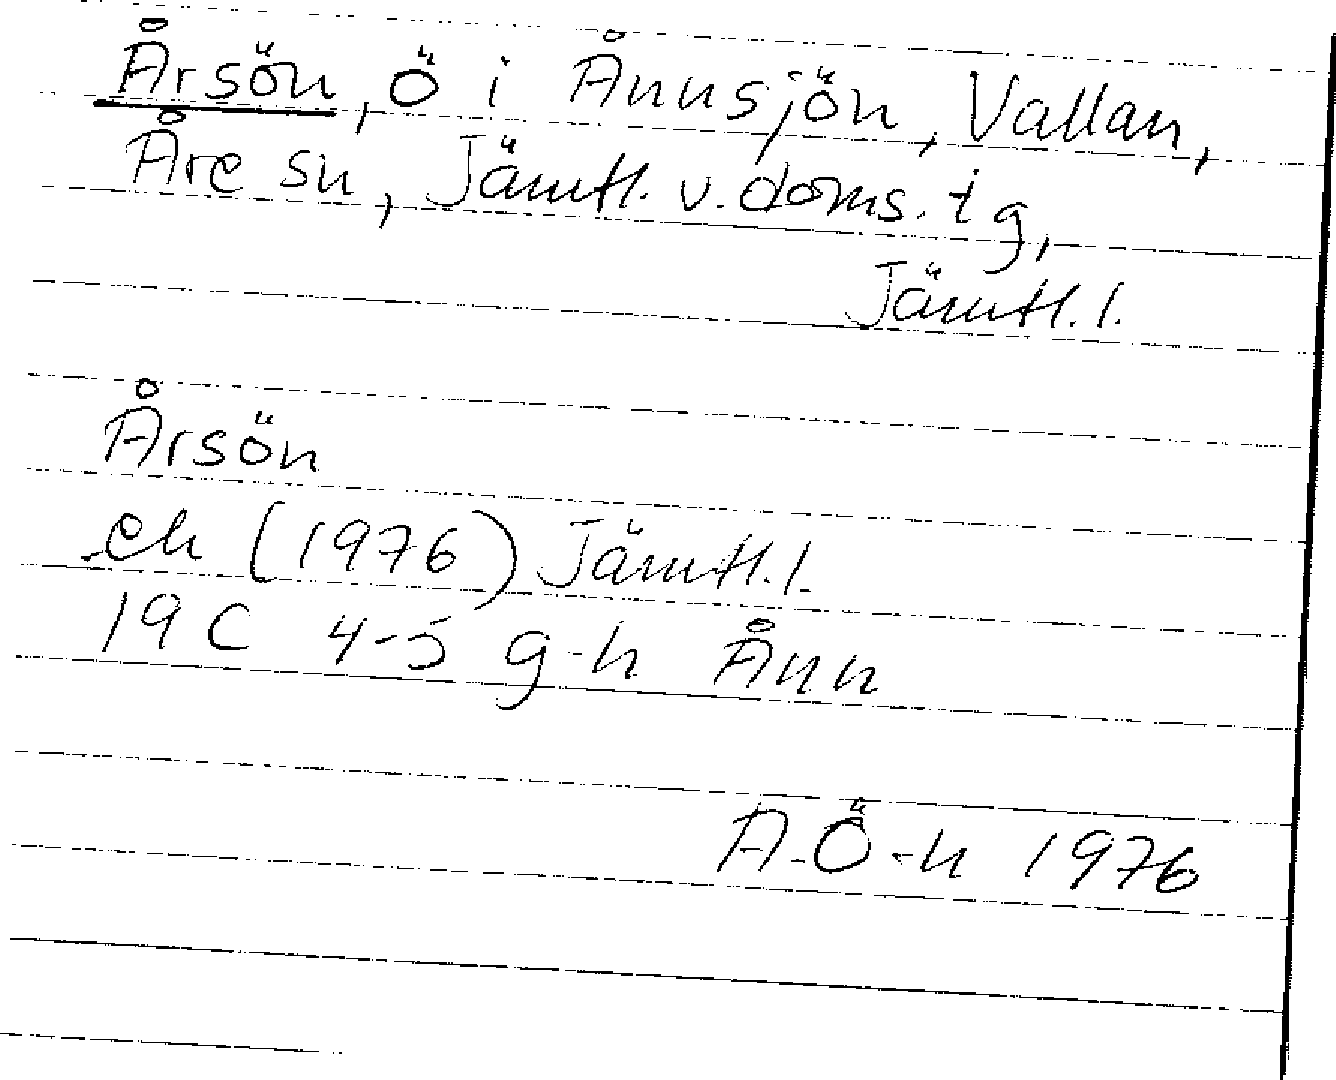 Årsön, ö i Ånnsjön, Vallan,
Åre sn, Jämtl. v. doms. tg,
Jämtl. l.
Årsön
ek (1976) Jämtl. l.
19 C 4-5 g-h Ånn
A-Ö-n 1976